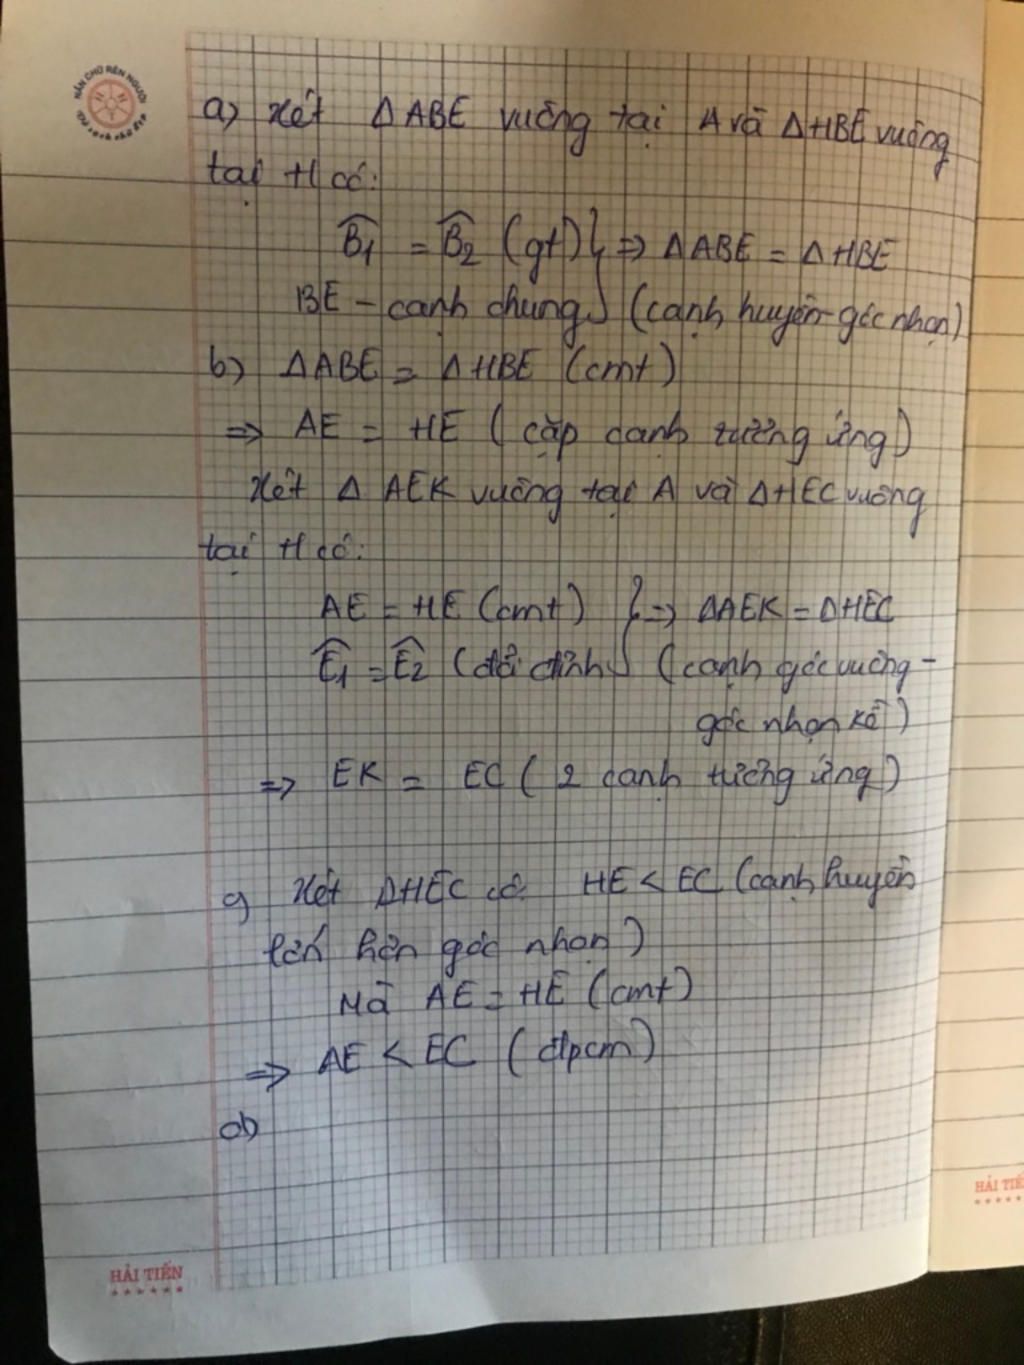 NẮN CHỮ RÈN NGƯỜI
Vở sạch chữ đẹp
a) Xét Δ ABE vuông tại A và Δ HBE vuông
tại H có:
B̂1 = B̂2 (gt) } => Δ ABE = Δ HBE
BE - cạnh chung } (cạnh huyền-góc nhọn)
b) Δ ABE = Δ HBE (cmt)
=> AE = HE ( cặp cạnh tương ứng)
Xét Δ AEK vuông tại A và Δ HEC vuông
tại H có:
AE = HE (cmt) } => ΔAEK = ΔHEC
Ê1 = Ê2 (đối đỉnh) } (cạnh góc vuông -
góc nhọn kề)
=> EK = EC ( 2 cạnh tương ứng)
c) Xét ΔHEC có: HE < EC (cạnh huyền
lớn hơn góc nhọn)
Mà AE = HE (cmt)
=> AE < EC (đpcm)
d)
HẢI TIẾN
HẢI TIẾ